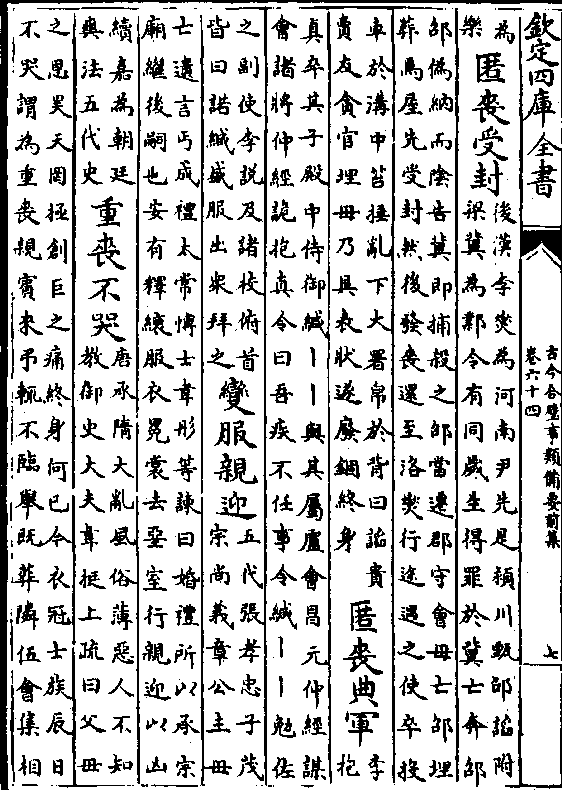 欽定四庫全書
古今合璧事類備要前集
卷六十四
七
為
樂
匿喪受封
後漢李燮為河南尹先是潁川甄邵諂附
梁冀為鄴令有同歲生得罪於冀亡奔邵
邵偽納而陰告冀即捕殺之邵當遷郡守會母亡邵埋
葬馬屋先受封然後發喪還至洛燮行途遇之使卒投
車於溝中笞捶亂下大署帛於背曰諂貴
賣友貪官埋母乃具表狀遂廢錮終身
匿喪典軍
李
抱
真卒其子殿中侍御緘丨丨與其屬盧會昌元仲經謀
會諸將仲經詭抱真令曰吾疾不任事令緘丨丨勉佐
之副使李說及諸校俯首
皆曰諾緘盛服出衆拜之
變服親迎
五代張孝忠子茂
宗尚義章公主母
亡遺言丐成禮太常博士韋彤等諫曰婚禮所以承宗
廟繼後嗣也安有釋縗服衣冕裳去堊室行親迎以凶
瀆嘉為朝廷
典法五代史
重喪不哭
唐承隋大亂風俗薄惡人不知
教御史大夫韋挺上疏曰父母
之恩昊天罔極創巨之痛終身何已今衣冠士族辰日
不哭謂為重喪親賓來弔輒不臨舉既葬隣伍會集相